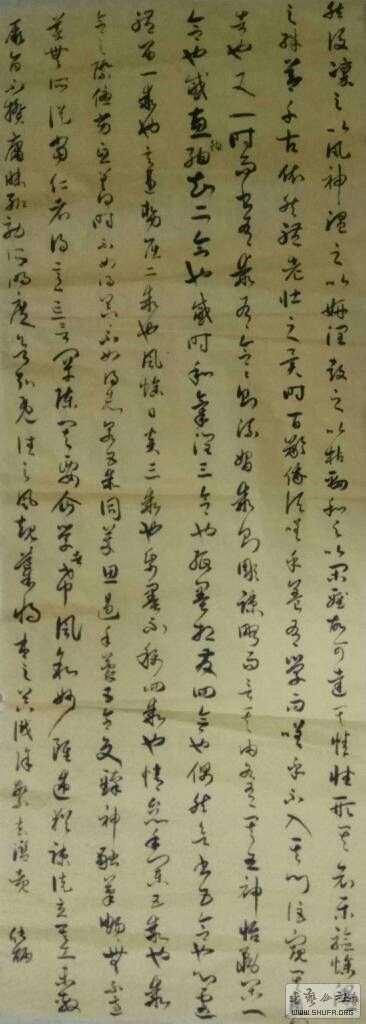 然後凜之以風神溫之以妍潤鼓之以枯勁和之以閑雅故可達其情性形其哀樂驗燥濕
之殊節千古依然體老壯之異時百齡俄頃嗟乎蓋有學而嗟乎不入其門詎窺其
奧者也又一時而書有乖有合合則流媚乖則彫疎略而言其由各有其五神怡務閑一
合也感惠徇知二合也感時和氣潤三合也紙墨相發四合也偶然欲書五合也心遽
體留一乖也意違勢屈二乖也風燥日炎三乖也紙墨不稱四乖也情怠手闌五乖也乖
合之際優劣互差得時不如得器不如得志若五乖同萃思遏手蒙五合交臻神融筆暢無不適
蒙無所從當仁者得意忘言罕陳其要企學者希風敘妙雖述猶疎徒立其工未敷
厥旨不揆庸昧輒效所明庶欲弘既往之風規導將來之器識除繁去濫
WWW.SHUFA.ORG